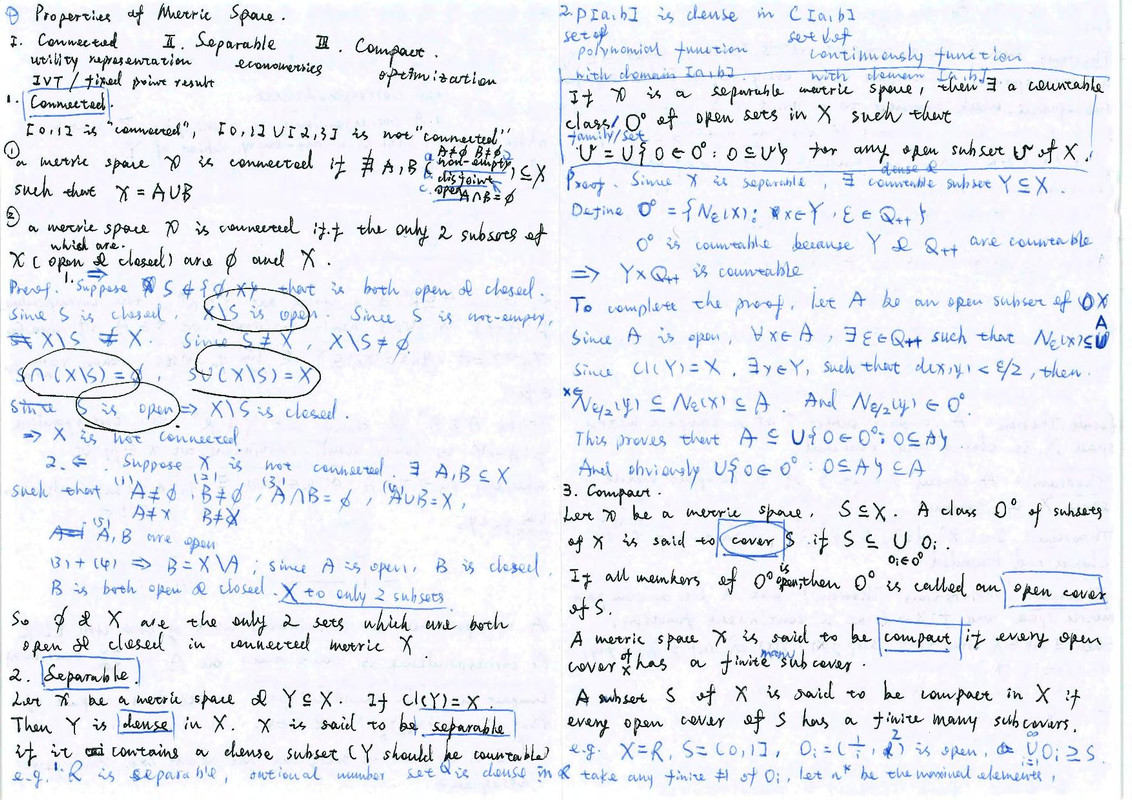 ① Properties of Metric Space.
I. Connected   II. Separable   III. Compact.
utility representation   econometrics   optimization
IVT / fixed point result
1. Connected.
[0,1] is "connected", [0,1]∪[2,3] is not "connected"
① a metric space X is connected if ∄ A, B (a. A≠∅ B≠∅ non-empty, b. disjoint A∩B=∅, c. open) ⊆ X
such that X = A∪B
② a metric space X is connected iff the only 2 subsets of
which are
X (open & closed) are ∅ and X.
Proof. 1. ⇒ Suppose S ∉ {∅, X} that is both open & closed.
Since S is closed, X\S is open. Since S is not-empty,
X\S ≠ X. Since S≠X, X\S≠∅
S∩(X\S)=∅, S∪(X\S)=X
Since S is open ⇒ X\S is closed.
⇒ X is not connected
2. ⇐. Suppose X is not connected. ∃ A, B ⊆ X
such that (1) A≠∅, (2) B≠∅, (3) A∩B=∅, (4) A∪B=X,
A≠X   B≠X
(5) A, B are open
(3)+(4) ⇒ B=X\A; since A is open, B is closed.
B is both open & closed. X to only 2 subsets.
So ∅ & X are the only 2 sets which are both
open & closed in connected metric X.
2. Separable.
Let X be a metric space & Y⊆X. If Cl(Y)=X.
Then Y is dense in X. X is said to be separable
if it contains a dense subset (Y should be countable)
e.g. 1. R is separable, rational number set Q is dense in R
2. P[a,b] is dense in C[a,b]
set of   set of
polynomial function   continuously function
with domain [a,b].   with domain [a,b]
If X is a separable metric space, then ∃ a countable
class/ O° of open sets in X such that
family/set
U = U{O∈O°: O⊆U} for any open subset U of X.
Proof. Since X is separable, ∃ dense & countable subset Y⊆X.
Define O° = {Nε(x): x∈Y, ε∈Q++}
O° is countable because Y & Q++ are countable
⇒ Y×Q++ is countable
To complete the proof, let A be an open subset of X
Since A is open ∀x∈A, ∃ε∈Q++ such that Nε(x)⊆A
Since Cl(Y)=X, ∃y∈Y, such that d(x,y)<ε/2, then.
x∈Nε/2(y) ⊆ Nε(x) ⊆ A   And Nε/2(y) ∈ O°.
This proves that A ⊆ U{O∈O°: O⊆A}
And obviously U{O∈O°: O⊆A} ⊆ A
3. Compact.
Let X be a metric space, S⊆X. A class O° of subsets
of X is said to cover S if S ⊆ ∪ Oi.
Oi∈O°
If all members of O° is open, then O° is called an open cover
of S.
A metric space X is said to be compact if every open
cover of X has a finite many subcover.
A subset S of X is said to be compact in X if
every open cover of S has a finite many subcovers.
e.g. X=R, S=(0,1], Oi=(1/i, 2) is open, ∞∪i=1 Oi ⊇ S.
take any finite # of Oi, let n* be the maximal elements,